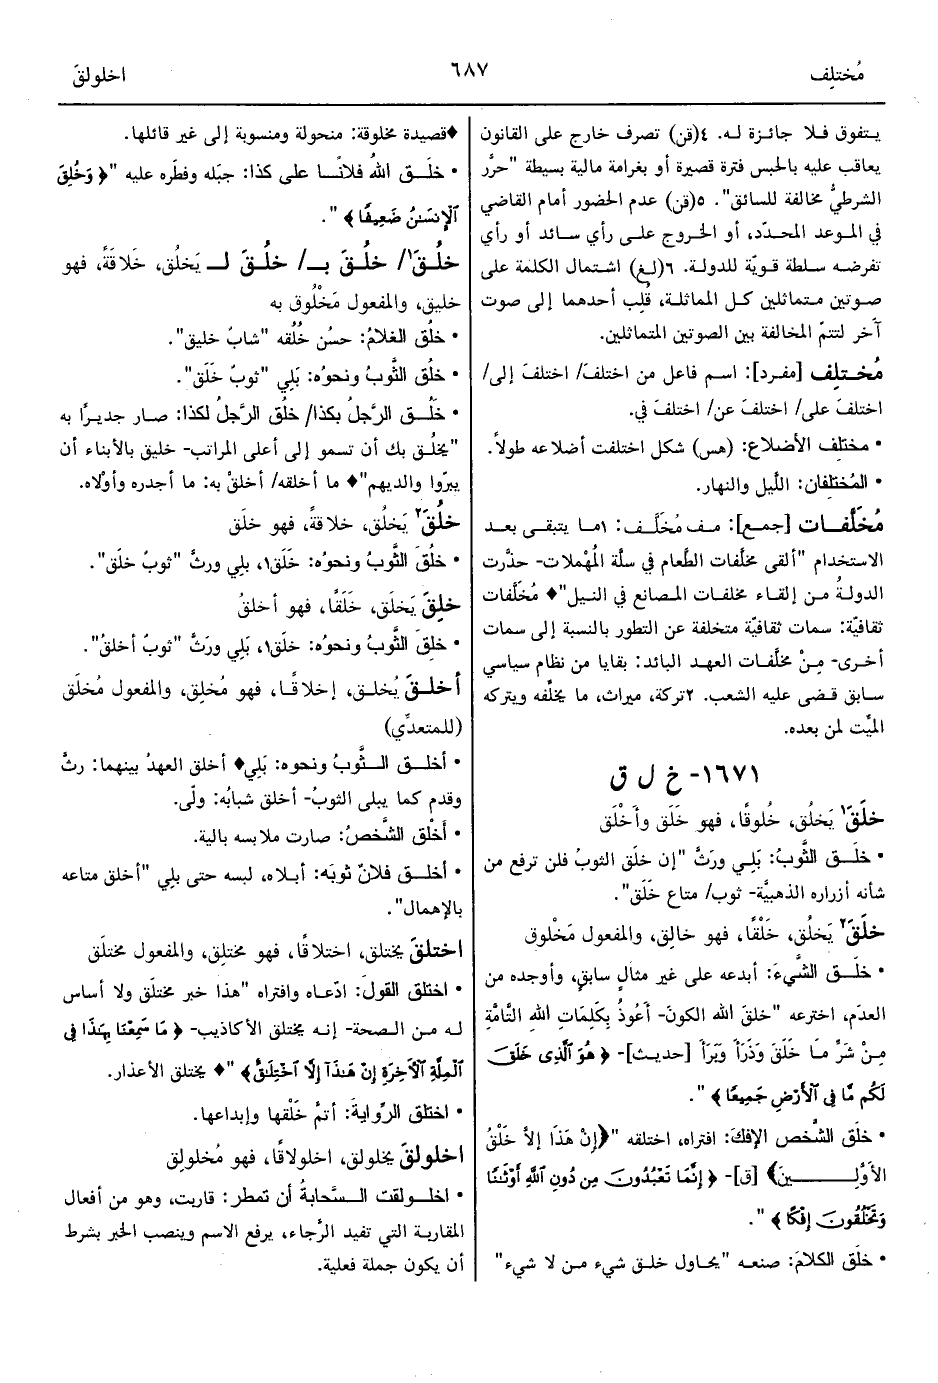 مُختلِف
٦٨٧
اخلولقَ
يتفوق فلا جائزة له. ٤(قن) تصرف خارج على القانون
يعاقب عليه بالحبس فترة قصيرة أو بغرامة مالية بسيطة "حرَّر
الشرطيُّ مخالفة للسائق". ٥(قن) عدم الحضور أمام القاضي
في الموعد المحدّد، أو الخروج على رأي سائد أو رأي
تفرضه سلطة قويّة للدولة. ٦(لغ) اشتمال الكلمة على
صوتين متماثلين كل المماثلة، قُلِب أحدهما إلى صوت
آخر لتتمّ المخالفة بين الصوتين المتماثلين.
مُختلِف [مفرد]: اسم فاعل من اختلفَ/ اختلفَ إلى/
اختلفَ على/ اختلفَ عن/ اختلفَ في.
• مختلف الأضلاع: (هس) شكل اختلفت أضلاعه طولاً.
• المُختلِفان: اللَّيل والنهار.
مُخلَّفات [جمع]: مف مُخَلَّف: ١ما يتبقى بعد
الاستخدام "ألقى مخلَّفات الطَّعام في سلَّة المُهملات- حذَّرت
الدولةُ من إلقاء مخلفات المصانع في النيل"♦ مُخلَّفات
ثقافيّة: سمات ثقافيّة متخلفة عن التطور بالنسبة إلى سمات
أخرى- مِنْ مخلَّفات العهد البائد: بقايا من نظام سياسي
سابق قضى عليه الشعب. ٢تركة، ميراث، ما يخلِّفه ويتركه
الميِّت لمن بعده.
١٦٧١- خ ل ق
خلَقَ١ يَخلُق، خُلوقًا، فهو خَلَق وأَخْلَق
• خلَق الثَّوبُ: بَلِي ورَثَّ "إن خلَق الثوبُ فلن ترفع من
شأنه أزراره الذهبيَّة- ثوب/ متاع خَلَق".
خلَقَ٢ يَخلُق، خَلْقًا، فهو خالِق، والمفعول مَخْلوق
• خلَق الشَّيءَ: أبدعه على غير مثالٍ سابقٍ، وأوجده من
العدَم، اخترعه "خلق الله الكونَ- أَعُوذُ بِكَلِمَاتِ اللهِ التَّامَّةِ
مِنْ شَرِّ مَا خَلَقَ وَذَرَأَ وَبَرَأَ [حديث]- ﴿هُوَ ٱلَّذِى خَلَقَ
لَكُم مَّا فِى ٱلْأَرْضِ جَمِيعًا﴾".
• خلَق الشَّخص الإفكَ: افتراه، اختلقه "﴿إِنْ هَذَا إلاَّ خَلْقُ
الأَوَّلِينَ﴾ [ق]- ﴿إِنَّمَا تَعْبُدُونَ مِن دُونِ ٱللَّهِ أَوْثَٰنًا
وَتَخْلُقُونَ إِفْكًا﴾".
• خلَق الكلامَ: صنعه "يحاول خلق شيء من لا شيء"
♦قصيدة مخلوقة: منحولة ومنسوبة إلى غير قائلها.
• خلَق اللهُ فلانًا على كذا: جبَله وفطَره عليه "﴿وَخُلِقَ
ٱلْإِنسَٰنُ ضَعِيفًا﴾".
خلُقَ١/ خلُقَ بـ/ خلُقَ لـ يَخلُق، خَلاقَةً، فهو
خليق، والمفعول مَخْلُوق به
• خلُق الغلامُ: حسُن خُلُقه "شابٌ خليق".
• خلُق الثَّوبُ ونحوُه: بَلِي "ثوبٌ خَلَق".
• خلُق الرَّجلُ بكذا/ خلُق الرَّجلُ لكذا: صار جديرًا به
"يخلُق بك أن تسمو إلى أعلى المراتب- خليق بالأبناء أن
يبرّوا والديهم"♦ ما أخلقه/ أخلقْ به: ما أجدره وأوْلاه.
خلُقَ٢ يَخلُق، خلاقةً، فهو خلَق
• خلُقَ الثَّوبُ ونحوُه: خَلَق١، بلِي ورثَّ "ثوبٌ خلَق".
خلِقَ يَخلَق، خَلَقًا، فهو أخلقُ
• خلِقَ الثَّوبُ ونحوُه: خلَق١، بَلِي ورَثَّ "ثوبٌ أخلقُ".
أخلقَ يُخلق، إخلاقًا، فهو مُخلِق، والمفعول مُخلَق
(للمتعدِّي)
• أخلق الثَّوبُ ونحوه: بَلِي♦ أخلق العهدُ بينهما: رثَّ
وقدم كما يبلى الثوبُ- أخلق شبابُه: ولَّى.
• أخْلق الشَّخصُ: صارت ملابسه بالية.
• أخلق فلانٌ ثوبَه: أبلاه، لبسه حتى بلِي "أخلق متاعه
بالإهمال".
اختلقَ يختلق، اختلاقًا، فهو مختلِق، والمفعول مختلَق
• اختلق القولَ: ادّعاه وافتراه "هذا خبر مختلَق ولا أساس
له من الصحة- إنه يختلق الأكاذيب- ﴿مَا سَمِعْنَا بِهَٰذَا فِى
ٱلْمِلَّةِ ٱلْءَاخِرَةِ إِنْ هَٰذَآ إِلَّا ٱخْتِلَٰقٌ﴾"♦ يختلق الأعذار.
• اختلق الرِّوايةَ: أتمَّ خَلْقها وإبداعها.
اخلولقَ يخلولق، اخلولاقًا، فهو مُخلولِق
• اخلولقت السَّحابةُ أن تمطر: قاربت، وهو من أفعال
المقاربة التي تفيد الرَّجاء، يرفع الاسم وينصب الخبر بشرط
أن يكون جملة فعلية.